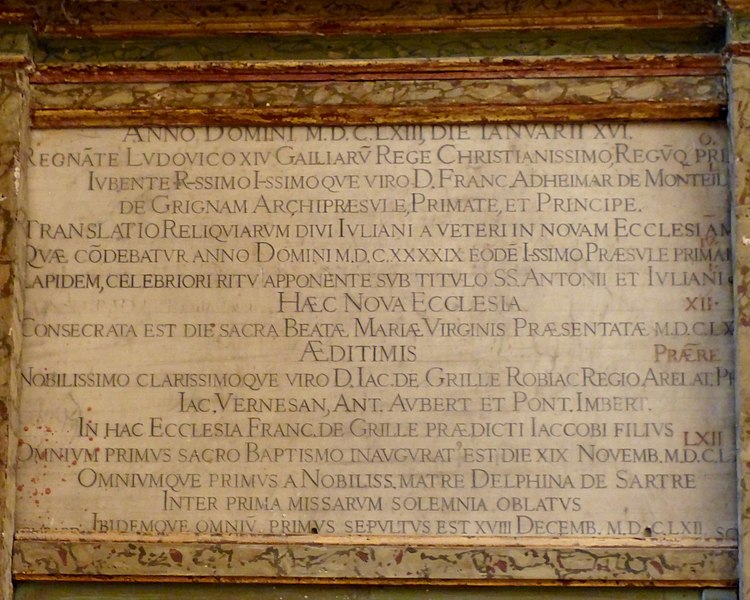 ANNO DOMINI M.D.C.LXIII, DIE IANVARII XVI.
REGNÃTE LVDOVICO XIV GAILIARV̄ REGE CHRISTIANISSIMO, REGV̄Q PRI
IVBENTE R-SSIMO I-SSIMOQVE VIRO D. FRANC. ADHEIMAR DE MONTEIL
DE GRIGNAM ARCHIPRÆSVLE, PRIMATE, ET PRINCIPE.
TRANSLATIO RELIQVIARVM DIVI IVLIANI A VETERI IN NOVAM ECCLESIAM
QVÆ CÕDEBATVR ANNO DOMINI M.D.C.XXXXIX EODẼ I-SSIMO PRÆSVLE PRIMA
LAPIDEM, CELEBRIORI RITV APPONENTE SVB TITVLO SS. ANTONII ET IVLIANI
HÆC NOVA ECCLESIA XII.
CONSECRATA EST DIE SACRA BEATÆ MARIÆ VIRGINIS PRÆSENTATÆ M.D.C.LX
ÆDITIMIS PRÆRE
NOBILISSIMO CLARISSIMOQVE VIRO D. IAC. DE GRILLE ROBIAC REGIO ARELAT. PR
IAC. VERNESAN, ANT. AVBERT ET PONT. IMBERT.
IN HAC ECCLESIA FRANC. DE GRILLE PRÆDICTI IACCOBI FILIVS LXII
OMNIVM PRIMVS SACRO BAPTISMO INAVGVRAT' EST DIE XIX NOVEMB. M.D.C.L
OMNIVMQVE PRIMVS A NOBILISS. MATRE DELPHINA DE SARTRE
INTER PRIMA MISSARVM SOLEMNIA OBLATVS
IBIDEMQVE OMNIV̄ PRIMVS SEPVLTVS EST XVIII DECEMB. M.D.C.LXII.